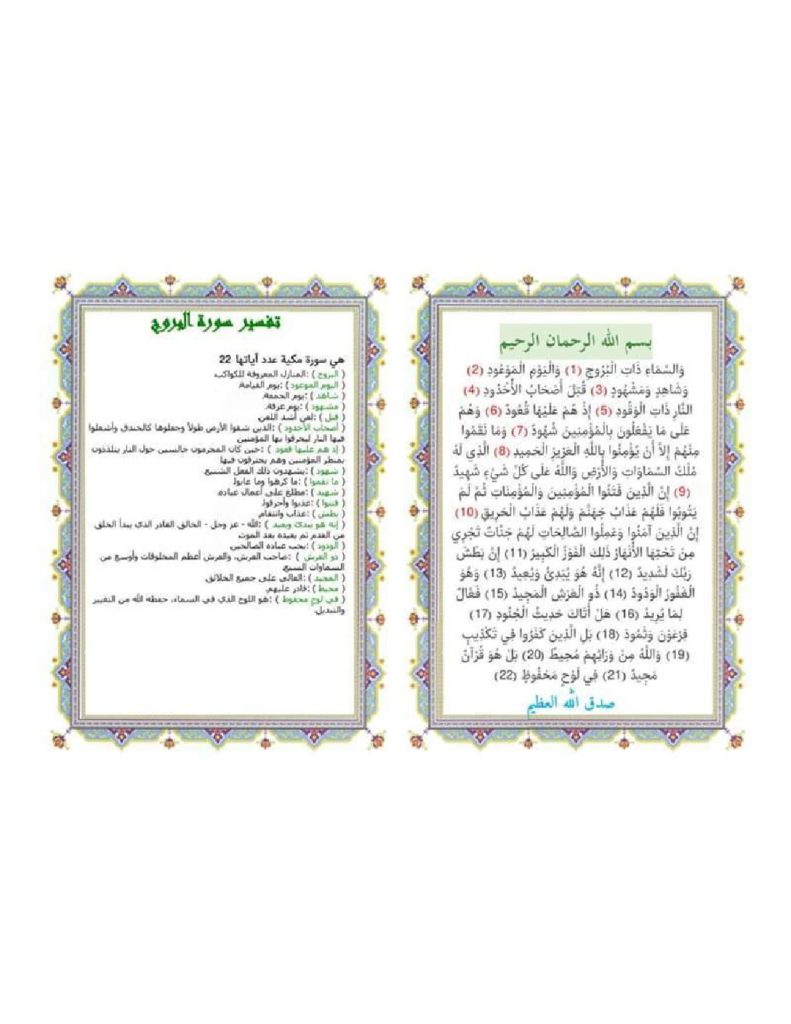 بسم الله الرحمان الرحيم
وَالسَّمَاءِ ذَاتِ الْبُرُوجِ (1) وَالْيَوْمِ الْمَوْعُودِ (2)
وَشَاهِدٍ وَمَشْهُودٍ (3) قُتِلَ أَصْحَابُ الْأُخْدُودِ (4)
النَّارِ ذَاتِ الْوَقُودِ (5) إِذْ هُمْ عَلَيْهَا قُعُودٌ (6) وَهُمْ
عَلَى مَا يَفْعَلُونَ بِالْمُؤْمِنِينَ شُهُودٌ (7) وَمَا نَقَمُوا
مِنْهُمْ إِلَّا أَنْ يُؤْمِنُوا بِاللَّهِ الْعَزِيزِ الْحَمِيدِ (8) الَّذِي لَهُ
مُلْكُ السَّمَاوَاتِ وَالْأَرْضِ وَاللَّهُ عَلَى كُلِّ شَيْءٍ شَهِيدٌ
(9) إِنَّ الَّذِينَ فَتَنُوا الْمُؤْمِنِينَ وَالْمُؤْمِنَاتِ ثُمَّ لَمْ
يَتُوبُوا فَلَهُمْ عَذَابُ جَهَنَّمَ وَلَهُمْ عَذَابُ الْحَرِيقِ (10)
إِنَّ الَّذِينَ آمَنُوا وَعَمِلُوا الصَّالِحَاتِ لَهُمْ جَنَّاتٌ تَجْرِي
مِنْ تَحْتِهَا الْأَنْهَارُ ذَلِكَ الْفَوْزُ الْكَبِيرُ (11) إِنَّ بَطْشَ
رَبِّكَ لَشَدِيدٌ (12) إِنَّهُ هُوَ يُبْدِئُ وَيُعِيدُ (13) وَهُوَ
الْغَفُورُ الْوَدُودُ (14) ذُو الْعَرْشِ الْمَجِيدُ (15) فَعَّالٌ
لِمَا يُرِيدُ (16) هَلْ أَتَاكَ حَدِيثُ الْجُنُودِ (17)
فِرْعَوْنَ وَثَمُودَ (18) بَلِ الَّذِينَ كَفَرُوا فِي تَكْذِيبٍ
(19) وَاللَّهُ مِنْ وَرَائِهِمْ مُحِيطٌ (20) بَلْ هُوَ قُرْآنٌ
مَجِيدٌ (21) فِي لَوْحٍ مَحْفُوظٍ (22)
صدق الله العظيم
تفسير سورة البروج
هي سورة مكية عدد آياتها 22
( البروج ) :المنازل المعروفة للكواكب.
( اليوم الموعود ) :يوم القيامة.
( شاهد ) :يوم الجمعة.
( مشهود ) :يوم عرفة.
( قتل ) :لعن أشد اللعن.
( أصحاب الأخدود ) :الذين شقوا الأرض طولاً وجعلوها كالخندق وأشعلوا
فيها النار ليحرقوا بها المؤمنين
( إذ هم عليها قعود ) :حين كان المجرمون جالسين حول النار يتلذذون
بمنظر المؤمنين وهم يحترقون فيها
( شهود ) :يشهدون ذلك الفعل الشنيع
( ما نقموا ) :ما كرهوا وما عابوا.
( شهيد ) :مطلع على أعمال عباده.
( فتنوا ) :عذبوا وأحرقوا.
( بطش ) :عذاب وانتقام.
( إنه هو يبدئ ويعيد ) :الله - عز وجل - الخالق القادر الذي يبدأ الخلق
من العدم ثم يعيده بعد الموت
( الودود ) :يحب عباده الصالحين
( ذو العرش ) :صاحب العرش، والعرش أعظم المخلوقات وأوسع من
السماوات السبع.
( المجيد ) :العالي على جميع الخلائق.
( محيط ) :قادر عليهم.
( في لوح محفوظ ) :هو اللوح الذي في السماء، حفظه الله من التغيير
والتبديل.